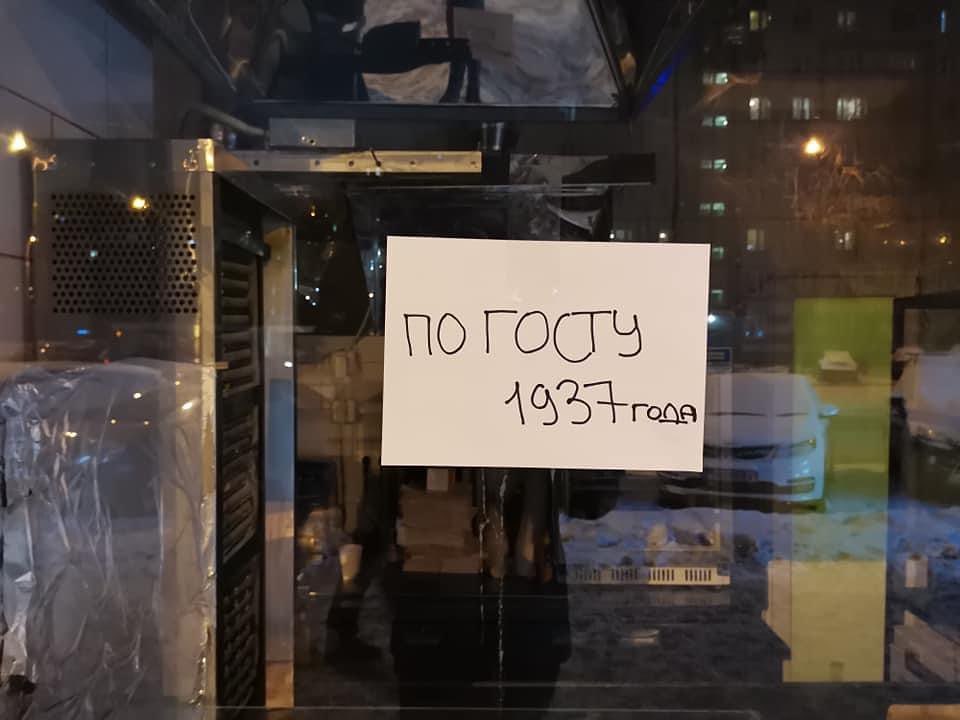 ПО ГОСТУ
1937 года